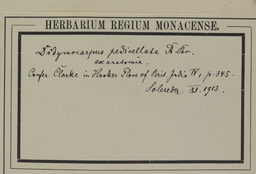 HERBARIUM REGIUM MONACENSE.
Didymocarpus pedicellata R. Br.
ex anatomia.
Confer Clarke in Hooker Flora of Brit. India IV, p. 345.
Solereder. XI. 1913.